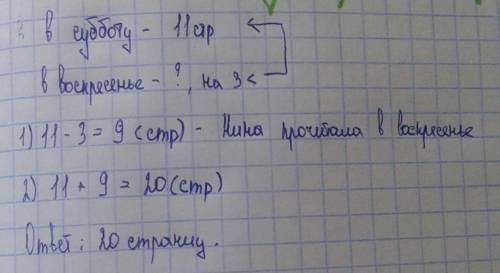 в субботу - 11 стр
в воскресенье - ?, на 3 <
1) 11 - 3 = 9 (стр) - Нина прочитала в воскресенье
2) 11 + 9 = 20 (стр)
Ответ: 20 страниц.